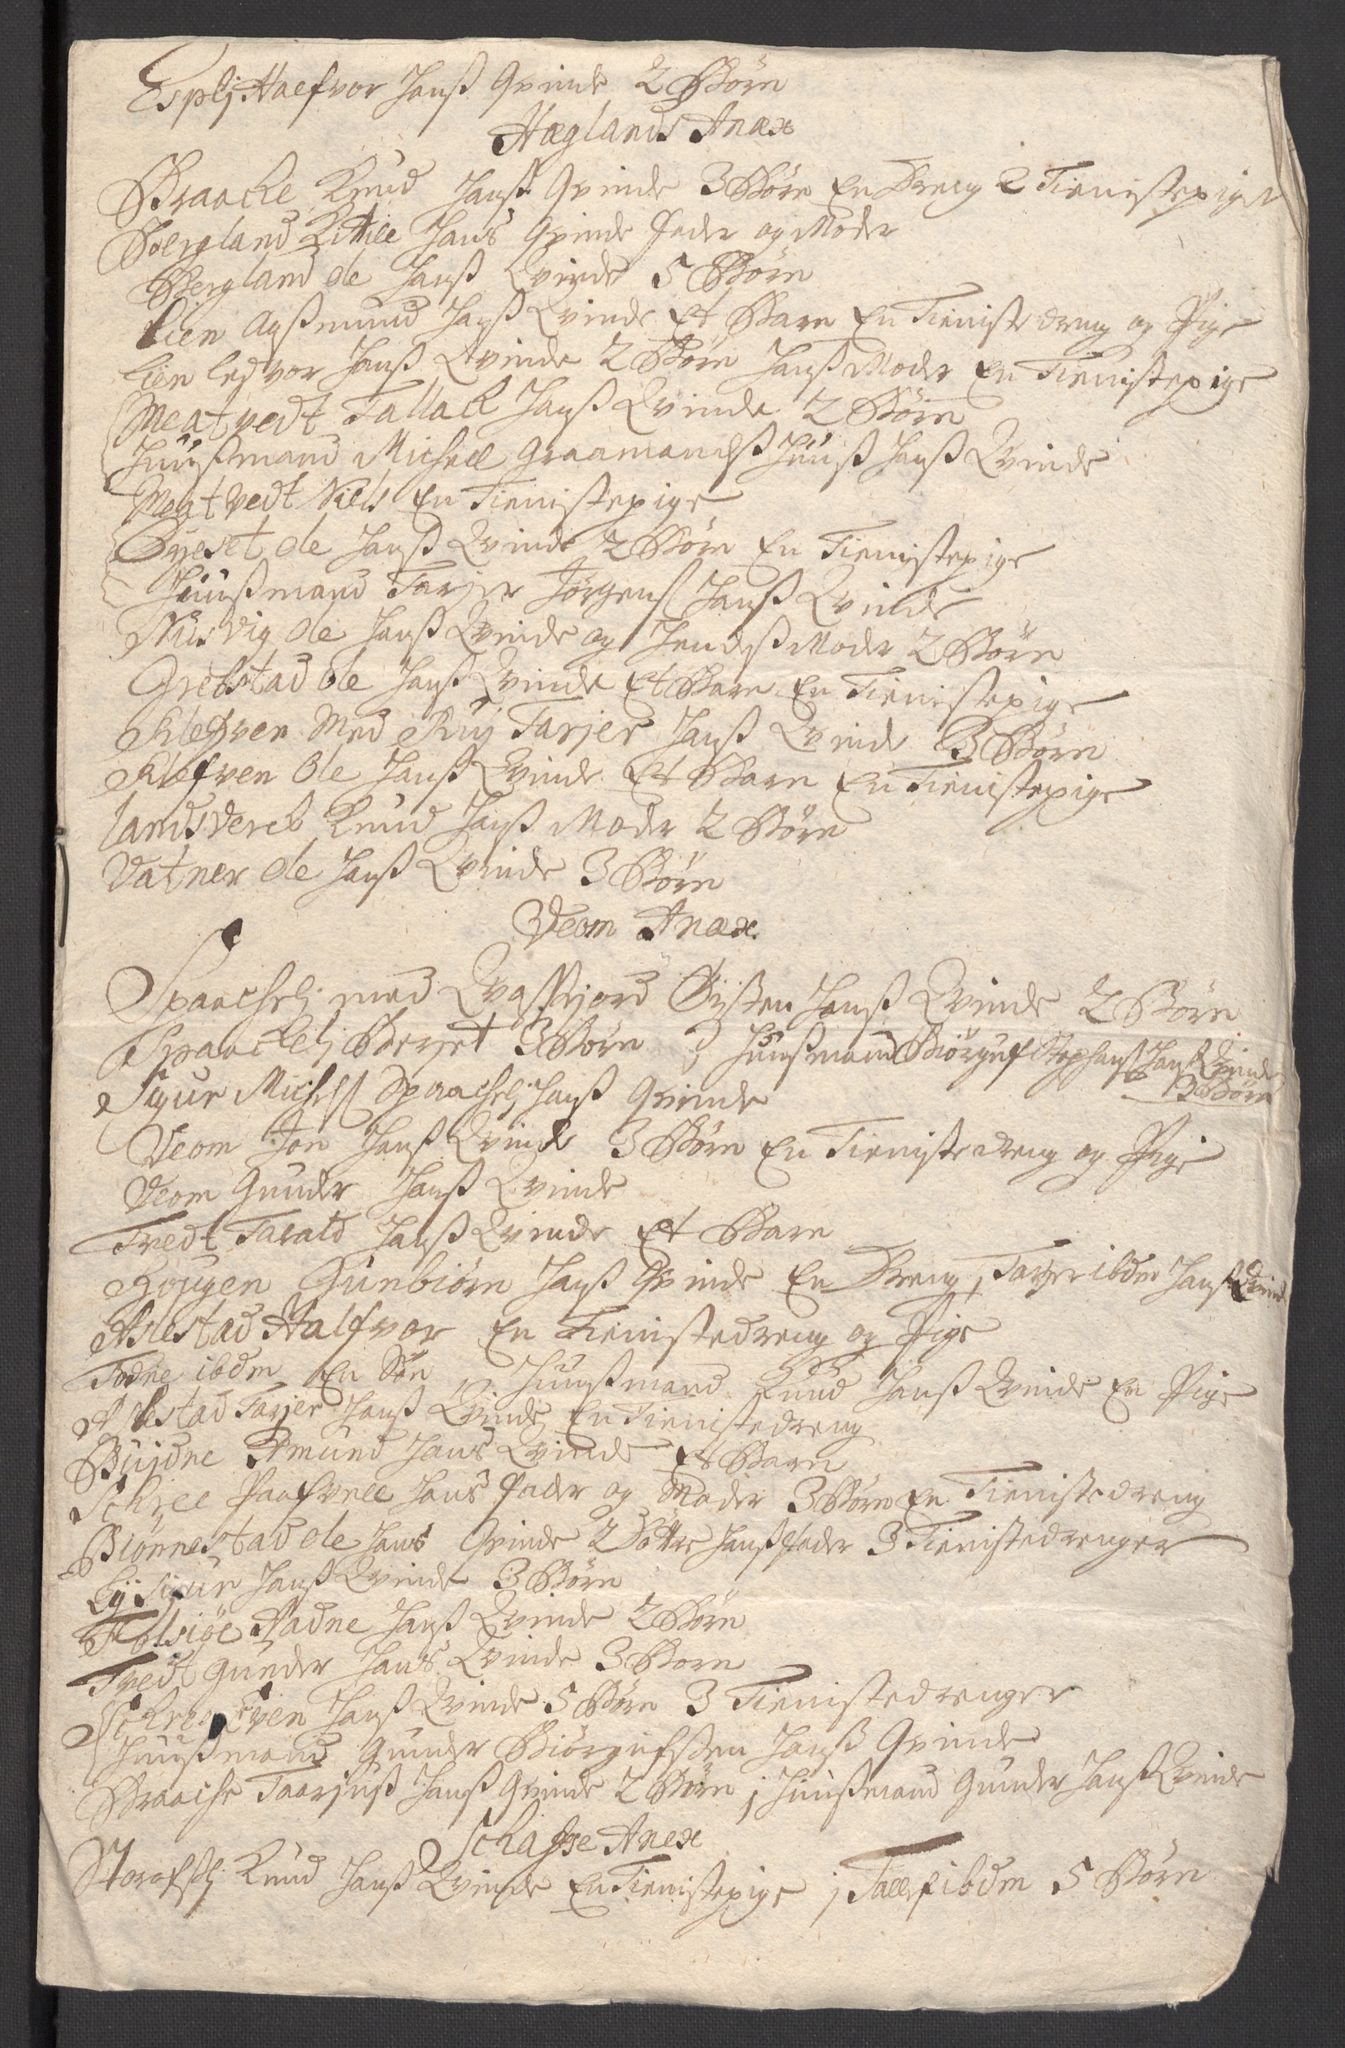 Esplj Halfvor Hanß Qvinde 2 Børn
Høglands Anæx
Braacke Knud Hanß Qvinde 3 Børn En Dreng 2 Tienistepiger
Bergland Kittill Hans Qvinde Fader og Moder
Bergland Ole Hanß Qvinde 5 Børn
Lien Aaßmund Hanß Qvinde Et Barn En Tieniste dreng og Pige
Lien Ledvor Hanß Qvinde 2 Børn Hanß Moder En Tienistepige
Meatvedt Tallack Hanß Qvinde 2 Børn
Huußmand Michell Graamandß Huuß Hanß Qvinde
Meatvedt Niels En Tienistepige
Ole Hanß Qvinde 2 Børn En Tienistepige
Huußmand Tarjer Jørgenß Hanß Qvinde
Niisvig Ole Hanß Qvinde og Hendeß Moder 2 Børn
Grebstad Ole Hanß Qvinde Et Barn En Tienistepige
Klefven Med Ruj Tarjer Hanß Qvinde 3 Børn
Klefven Ole Hanß Qvinde Et Barn En Tienistepige
Landsverck Knud Hanß Moder 2 Børn
Vatner Ole Hanß Qvinde 3 Børn
Veom Anæx
Spaachelj med Qvaßfjord Øysten Hanß Qvinde 2 Børn
Spaackelj Berjet 3 Børn j Huußmand Biørguf Stephanß Hanß Qvinde
3 Børn
Sjgur Michelß Spaachelj Hanß Qvinde
Veom Jon Hanß Qvinde 3 Børn En Tienistedreng og Pige
Veom Gunder Hanß Qvinde
Tvedt Tarald Hanß Qvinde Et Barn
Hougen Gunbiørn Hanß Qvinde En Dreng, Tarjer ibdm Hanß Qvinde
Aslestad Halfvor En Tienistedreng og Pige
Todne ibdm En Søn j Huußmand Knud Hanß Qvinde En Pige
Aslestad Tarjer Hanß Qvinde En Tienistedreng
Bujdne Amund Hans Qvinde Et Barn
Schree Paafvell Hans Fader og Moder 3 Børn En Tienistedreng
Biønnestad Ole Hans Qvinde 2 Døttre Hanß Fader 3 Tienistedrenger
Lij Sigur Hanß Qvinde 3 Børn
Folsiøe Aadne Hanß Qvinde 2 Børn
Tvedt Gunder Hans Qvinde 3 Børn
Schree Even Hanß Qvinde 5 Børn 3 Tienistedrenger
Huußmand Gunder Biørgufsen Hanß Qvinde
Braache Taarjuß Hanß Qvinde 2 Børn j Huußmand Gunder Hanß Qvinde
Schafse Anex
Knud Hanß Qvinde En Tienistepige j Tallef ibdm 5 Børn